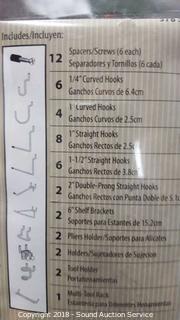 Includes/Incluyen:
12 Spacers/Screws (6 each)
Separadores y Tornillos (6 cada)
6 1/4" Curved Hooks
Ganchos Curvos de 6.4cm
4 1" Curved Hooks
Ganchos Curvos de 2.5cm
8 1" Straight Hooks
Ganchos Rectos de 2.5c
6 1-1/2" Straight Hooks
Ganchos Rectos de 3.8c
2 2" Double-Prong Straight Hooks
Ganchos Rectos con Punta Doble de 5.1c
2 6" Shelf Brackets
Soportes para Estantes de 15.2cm
2 Pliers Holder/Soportes para Alicates
2 Holders/Sujetadores de Sujecion
2 Tool Holder
Portaherramientas
1 Multi-Tool Rack
Copyright 2018 - Sound Auction Service